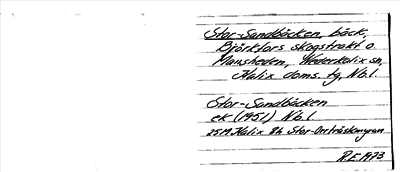 Stor-Sandbäcken, bäck,
Björkfors skogstrakt o.
Mausheden, Nederkalix sn,
Kalix doms. tg, Nb.l.
Stor-Sandbäcken
ek (1951) Nb.l.
25M Kalix 8b Stor-Onträskmyran
R.E. 1973